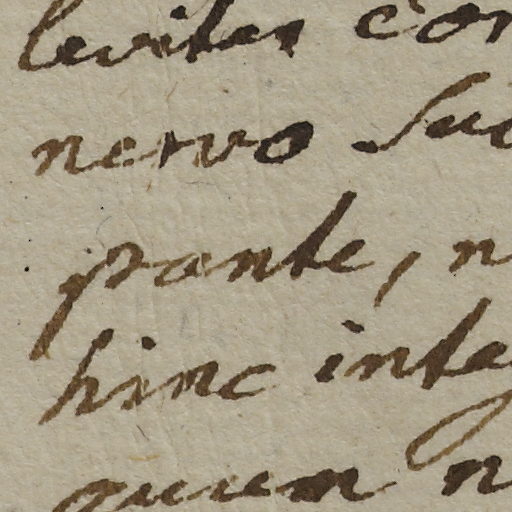 leviter con
nervo sub
pante, n
hinc integ
quum n